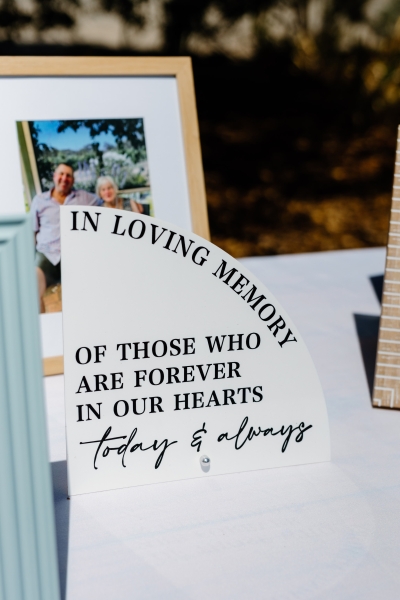 IN LOVING MEMORY
OF THOSE WHO
ARE FOREVER
IN OUR HEARTS
today & always